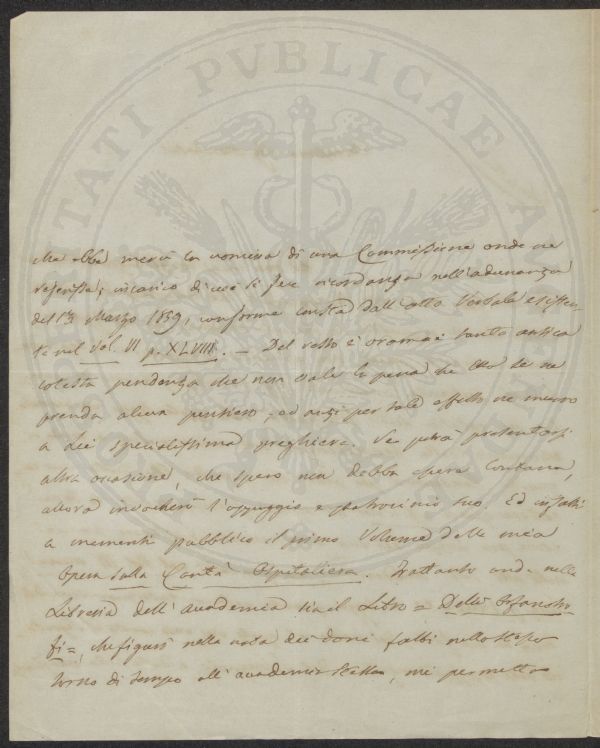 che ebbe mercè la nomina di una Commissione onde ne
referisse; incarico di cui si fece ricordanza nell'adunanza
del 13 Marzo 1859, conforme consta dall'atto Verbale esisten-
te nel Vol. VI p. XLVIII. — Del resto è oramai tanto antica
cotesta pendenza che non vale la pena che Ella se ne
prenda alcun pensiero, ed anzi per tale effetto ne muovo
a Lei specialissima preghiera. Se potrà presentarsi
altra occasione, che spero non debba essere lontana,
allora invocherò l'appoggio e patrocinio suo. Ed infatti
a momenti pubblico il primo Volume della mia
Opera sulla Carità Ospitaliera. Frattanto onde nella
Libreria dell'Accademia sia il Libro = Delli Orfanotro-
fi =, che figurò nella nota dei doni fatti nello stesso
torno di tempo all'accademia stessa, mi permetto